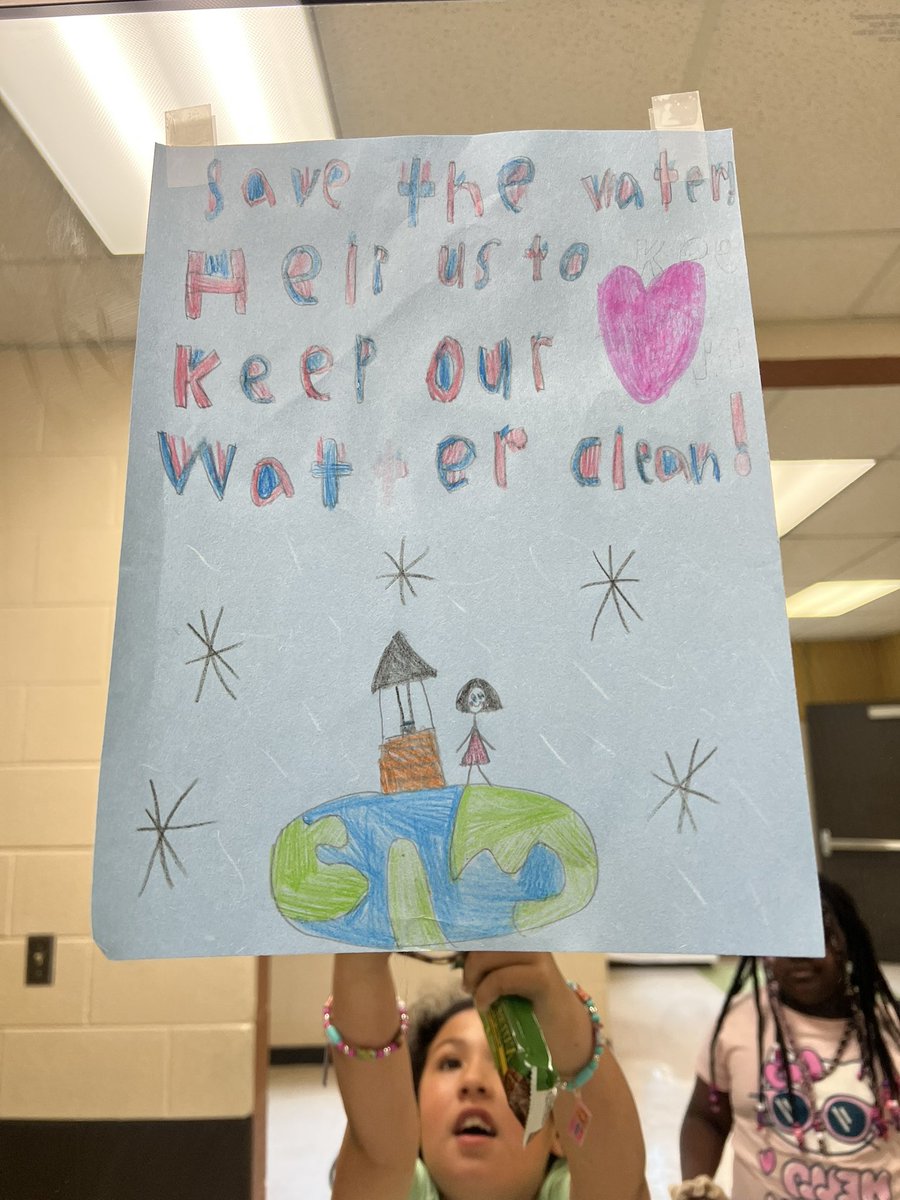 Save the water!
Help us to
Keep our
Watter clean!